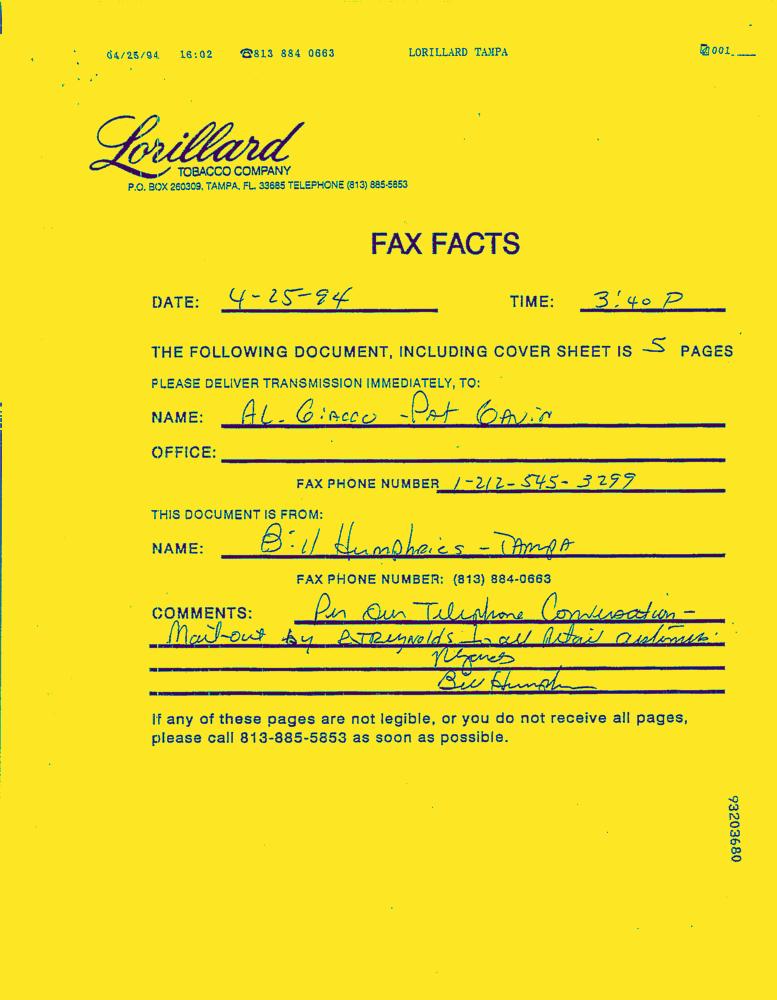 04/25/94 16:02 ☎813 884 0663 LORILLARD TAMPA 001
Lorillard
TOBACCO COMPANY
P.O. BOX 260309, TAMPA, FL. 33685 TELEPHONE (813) 885-5853
FAX FACTS
DATE: 4-25-94 TIME: 3:40 P
THE FOLLOWING DOCUMENT, INCLUDING COVER SHEET IS 5 PAGES
PLEASE DELIVER TRANSMISSION IMMEDIATELY, TO:
NAME: AL. GiAcco - PAt GAViN
OFFICE:
FAX PHONE NUMBER 1-212-545-3299
THIS DOCUMENT IS FROM:
NAME: Bill Humphries - TAmpA
FAX PHONE NUMBER: (813) 884-0663
COMMENTS: Per Our Telephone Conversation -
Mail-out by RJReynolds to all Retail customers.
Regards
Bill Humph
If any of these pages are not legible, or you do not receive all pages,
please call 813-885-5853 as soon as possible.
93203680